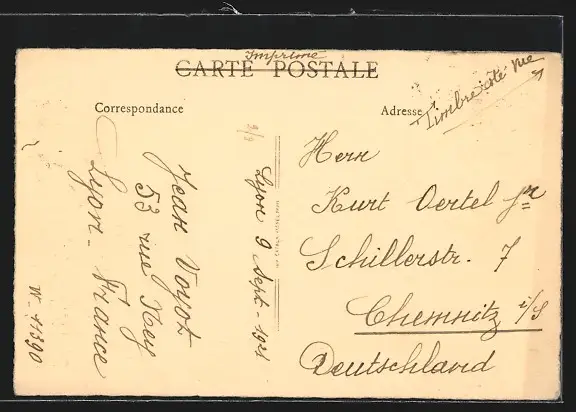 Imprimé
CARTE POSTALE
Timbre côté vue
Correspondance
Adresse
Jean Voyot
53 rue Ney
Lyon - France
W. 11390
9/9
Lyon 9 Sept - 1921
Herrn
Kurt Oertel jr
Schillerstr. 7
Chemnitz i/S
Deutschland